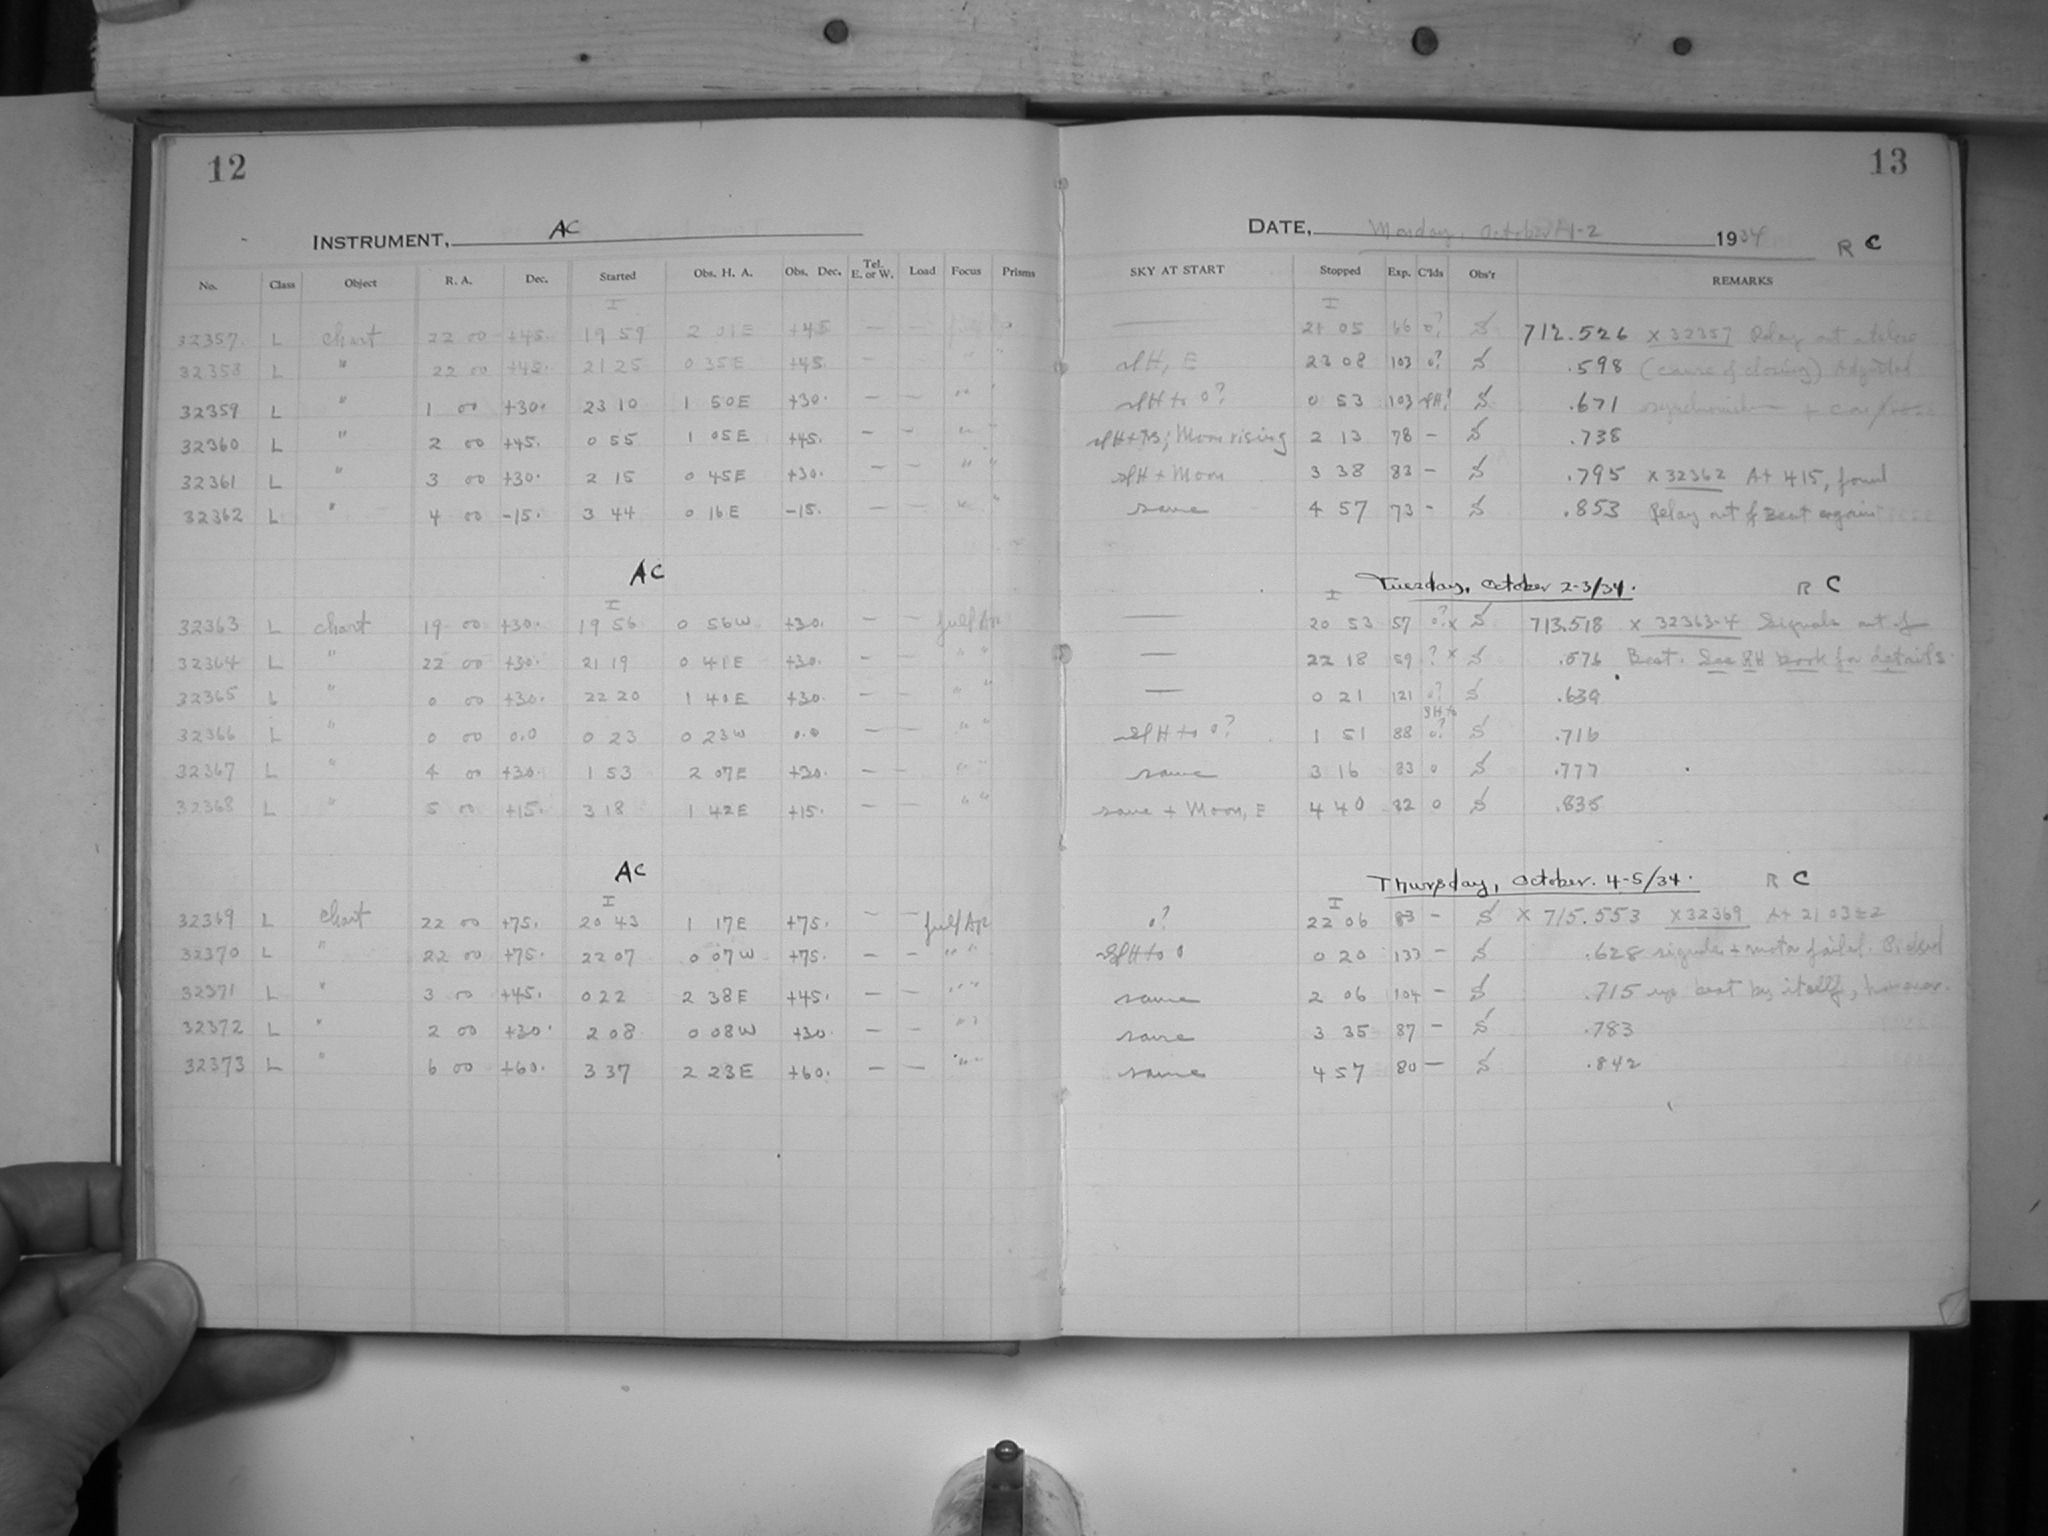 12
INSTRUMENT, AC
No. Class Object R. A. Dec. Started Obs. H. A. Obs. Dec. Tel. E. or W. Load Focus Prisms
I
32357 L chart 22 00 +45. 19 59 2 01E +45 — —
32358 L " 22 00 +45. 21 25 0 35E +45. — —
32359 L " 1 00 +30. 23 10 1 50E +30. — — " "
32360 L " 2 00 +45. 0 55 1 05E +45. — — " "
32361 L " 3 00 +30. 2 15 0 45E +30. — — " "
32362 L " 4 00 -15. 3 44 0 16E -15. — — " "
AC
I
32363 L chart 19 00 +30. 19 56 0 56W +30. — — full Ap
32364 L " 22 00 +30. 21 19 0 41E +30. — — " "
32365 L " 0 00 +30. 22 20 1 40E +30. — — " "
32366 L " 0 00 0.0 0 23 0 23W 0.0 — — " "
32367 L " 4 00 +30. 1 53 2 07E +30. — — " "
32368 L " 5 00 +15. 3 18 1 42E +15. — — " "
AC
I
32369 L chart 22 00 +75. 20 43 1 17E +75. — — full Ap
32370 L " 22 00 +75. 22 07 0 07W +75. — — " "
32371 L " 3 00 +45. 0 22 2 38E +45. — — " "
32372 L " 2 00 +30. 2 08 0 08W +30. — — " "
32373 L " 6 00 +60. 3 37 2 23E +60. — — " "
13
DATE, Monday, October 1-2 1934 R C
SKY AT START Stopped Exp. C'lds Obs'r REMARKS
I
— 21 05 66 0? S 712.526 x 32357 Relay out
slH, E 23 08 103 0? S .598 (cause of closing) Adjusted
slH to 0? 0 53 103 slH? S .671
; Moon rising 2 13 78 - S .738
slH + Moon 3 38 83 - S .795 x 32362 At 415, found
same 4 57 73 - S .853 Relay out of Beat again
Tuesday, October 2-3/34. R C
I
— 20 53 57 0? x S 713.518 x 32363-4 Signals out of
— 22 18 59 ? x S .576 Beat. See RH book for details.
— 0 21 121 0? S .639
slH to 0? 1 51 88 slH to 0? S .716
same 3 16 83 0 S .777
same + Moon, E 4 40 82 0 S .835
Thursday, October. 4-5/34. R C
I
0? 22 06 83 - S x 715.553 x 32369 At 21 03±2
slH to 0 0 20 133 - S .628 signals + motor failed. Picked
same 2 06 104 - S .715 up beat by itself, however.
same 3 35 87 - S .783
same 4 57 80 — S .842